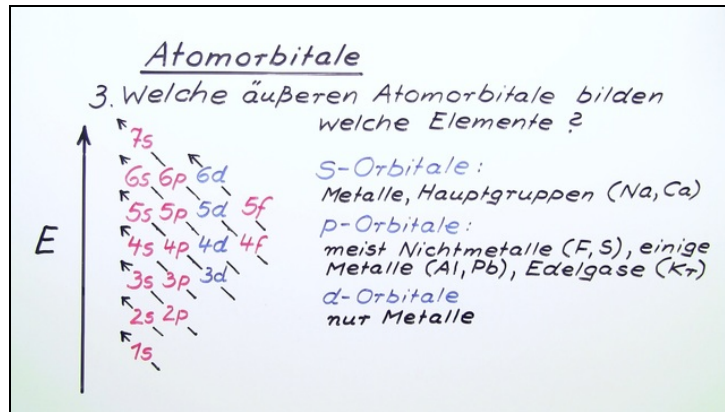 Atomorbitale
3. Welche äußeren Atomorbitale bilden
welche Elemente?
E
7s
6s 6p 6d
5s 5p 5d 5f
4s 4p 4d 4f
3s 3p 3d
2s 2p
1s
S-Orbitale:
Metalle, Hauptgruppen (Na, Ca)
p-Orbitale:
meist Nichtmetalle (F, S), einige
Metalle (Al, Pb), Edelgase (Kr)
d-Orbitale
nur Metalle